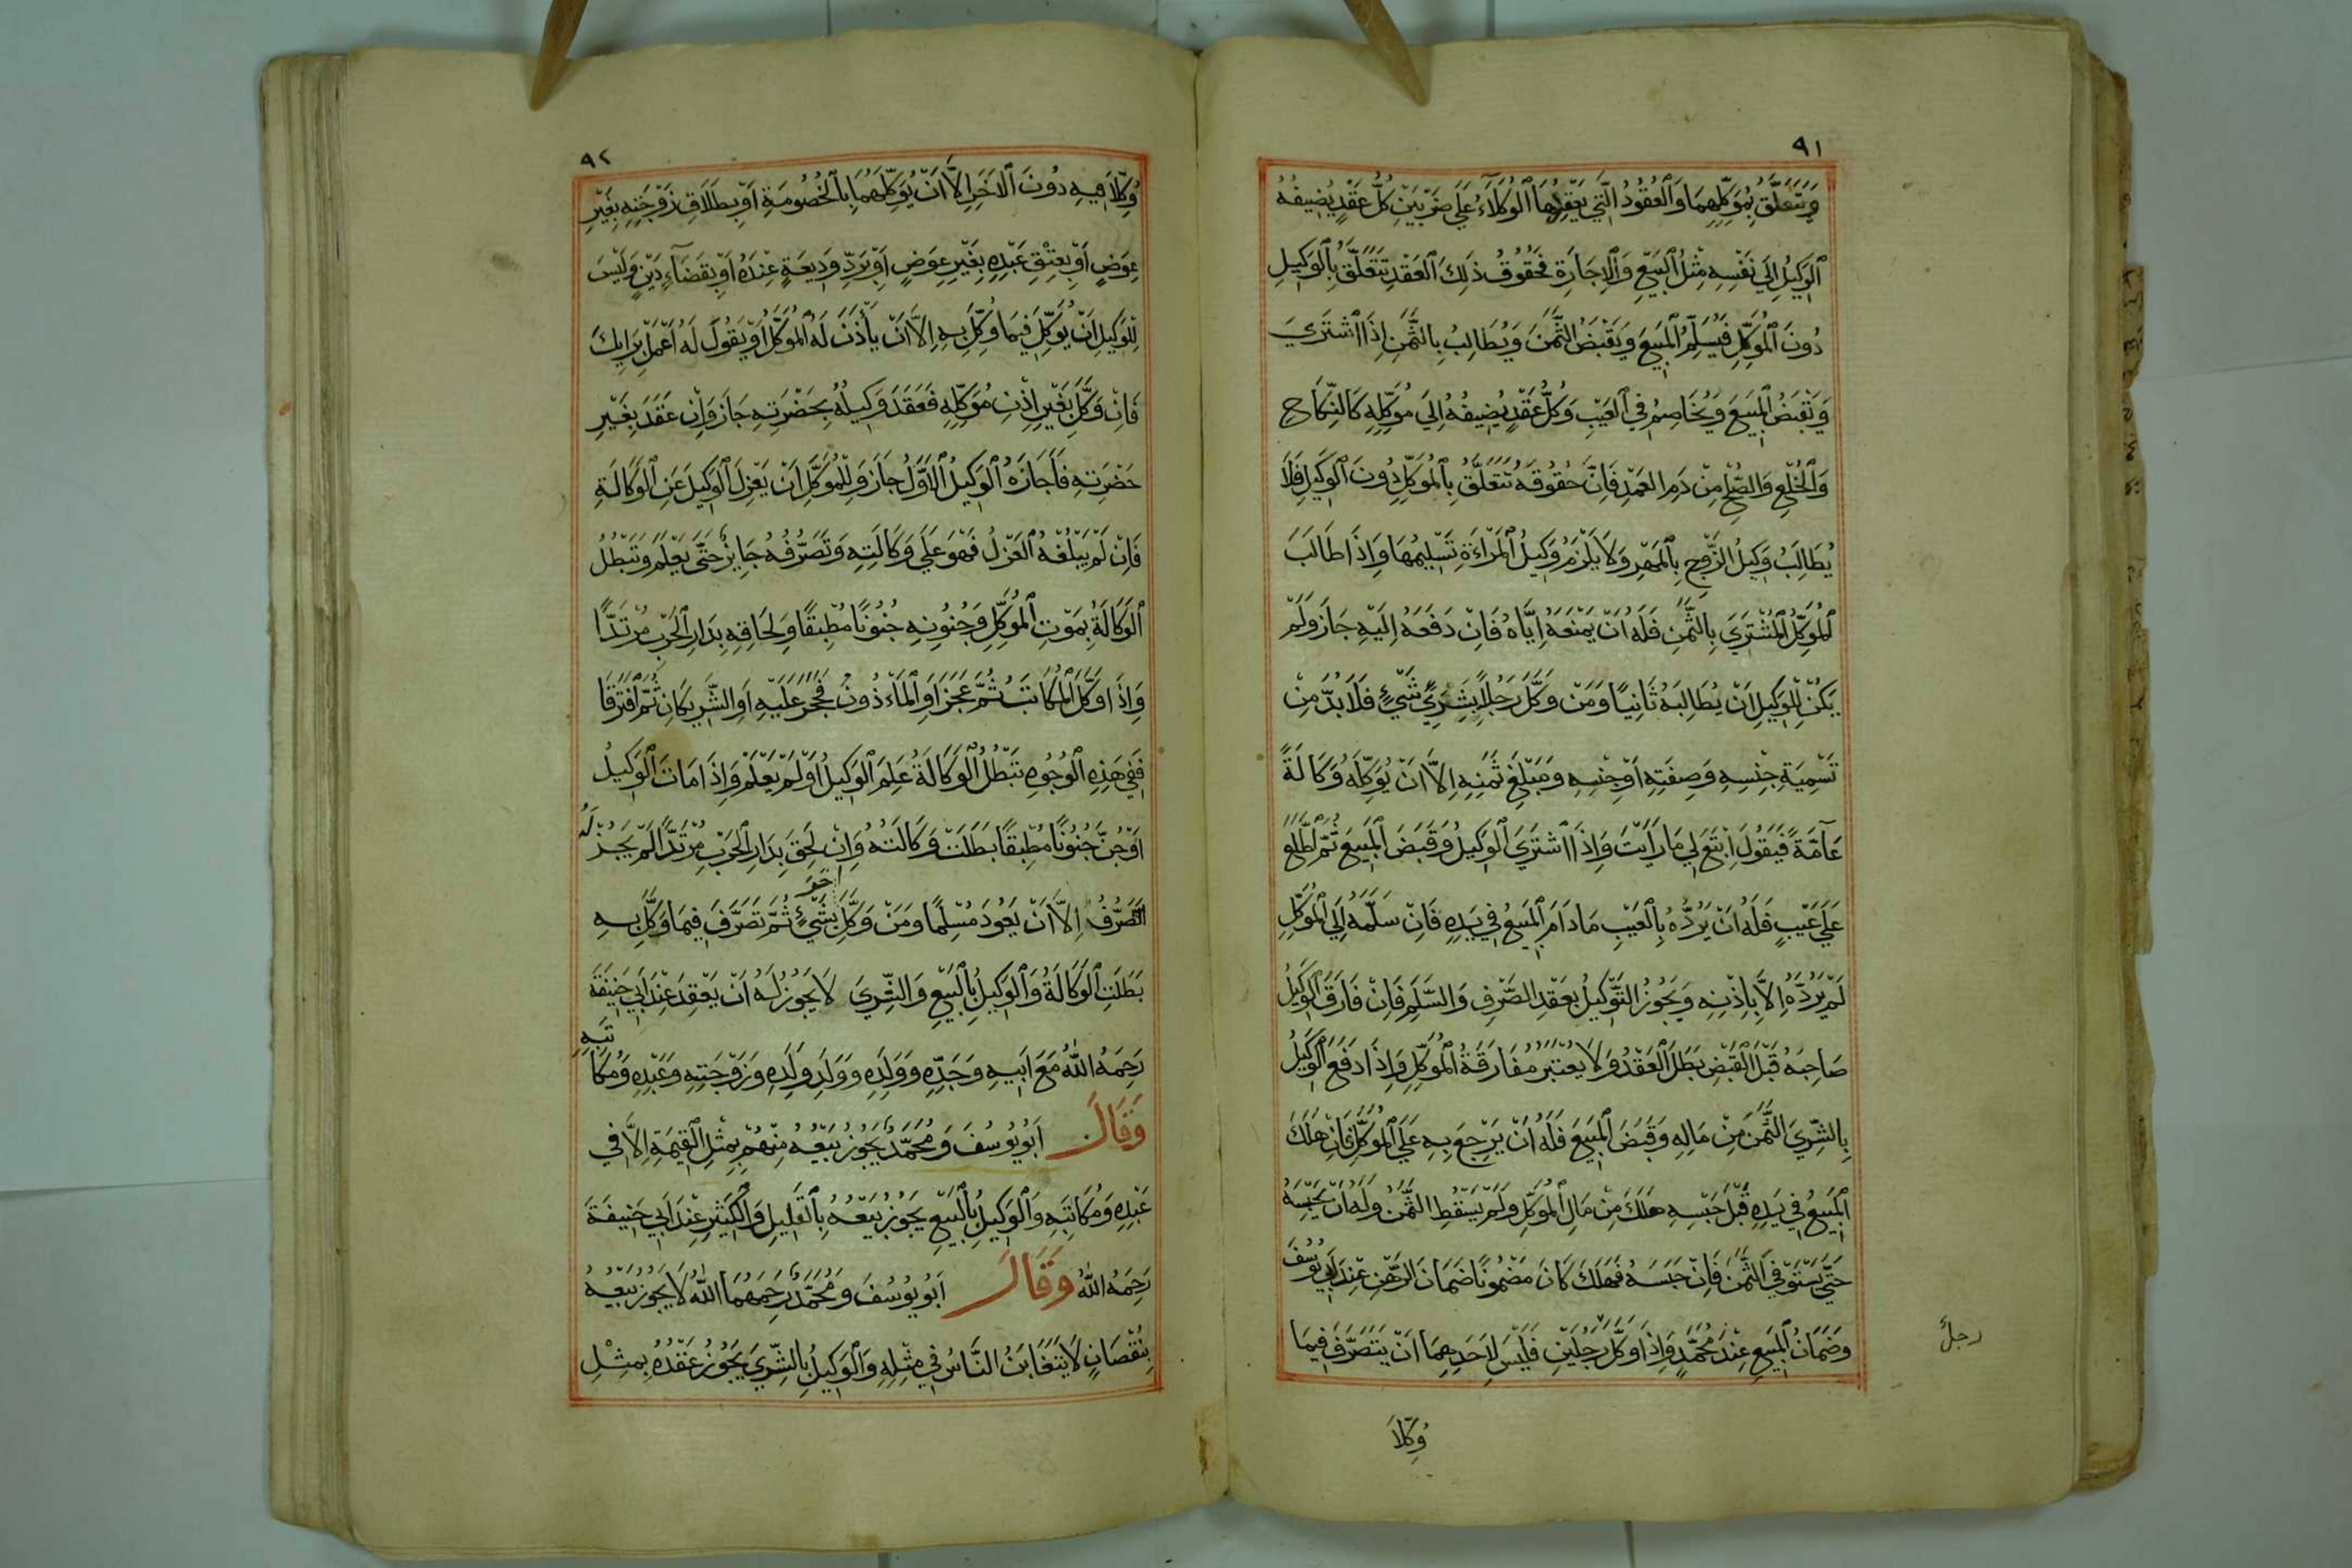 ٩١
وَيَتَعَلَّقُ بِمُوَكِّلِهِمَا وَالْعُقُودُ الَّتِي يَعْقِدُهَا الْوُكَلَاءُ عَلَى ضَرْبَيْنِ كُلُّ عَقْدٍ يُضِيفُهُ
الْوَكِيلُ اِلَى نَفْسِهِ مِثْلُ الْبَيْعِ وَالْاِجَارَةِ فَحُقُوقُ ذٰلِكَ الْعَقْدِ تَتَعَلَّقُ بِالْوَكِيلِ
دُونَ الْمُوَكِّلِ فَيُسَلِّمُ الْمَبِيعَ وَيَقْبَضُ الثَّمَنَ وَيُطَالِبُ بِالثَّمَنِ اِذَا اشْتَرَىَ
وَيَقْبَضُ الْمَبِيعَ وَيُخَاصِمُ فِي الْعَيْبِ وَكُلُّ عَقْدٍ يُضِيفُهُ اِلَى مُوَكِّلِهِ كَالنِّكَاحِ
وَالْخُلْعِ وَالصُّلْحِ مِنْ دَمِ الْعَمْدِ فَاِنَّ حُقُوقَهُ تَتَعَلَّقُ بِالْمُوَكِّلِ دُونَ الْوَكِيلِ فَلَا
يُطَالِبُ وَكِيلُ الزَّوْجِ بِالْمَهْرِ وَلَا يَلْزَمُ وَكِيلُ الْمَرْاَةِ تَسْلِيمُهَا وَاِذَا طَالَبَ
الْمُوَكِّلُ الْمُشْتَرِىَ بِالثَّمَنِ فَلَهُ اَنْ يَمْنَعَهُ اِيَّاهُ فَاِنْ دَفَعَهُ اِلَيْهِ جَازَ وَلَمْ
يَكُنْ لِلْوَكِيلِ اَنْ يُطَالِبَهُ ثَانِيًا وَمَنْ وَكَّلَ رَجُلًا بِشِرَىِ شَىْءٍ فَلَا بُدَّ مِنْ
تَسْمِيَةِ جِنْسِهِ وَصِفَتِهِ اَوْ جِنْسِهِ وَمَبْلَغِ ثَمَنِهِ اِلَّا اَنْ يُوَكِّلَهُ وَكَالَةً
عَامَّةً فَيَقُولَ اِبْتَعْ لِي مَا رَاَيْتَ وَاِذَا اشْتَرَىَ الْوَكِيلُ وَقَبَضَ الْمَبِيعَ ثُمَّ اطَّلَعَ
عَلَى عَيْبٍ فَلَهُ اَنْ يَرُدَّهُ بِالْعَيْبِ مَا دَامَ الْمَبِيعُ فِي يَدِهِ فَاِنْ سَلَّمَهُ اِلَى الْمُوَكِّلِ
لَمْ يَرُدَّهُ اِلَّا بِاِذْنِهِ وَيَجُوزُ التَّوْكِيلُ بِعَقْدِ الصَّرْفِ وَالسَّلَمِ فَاِنْ فَارَقَ الْوَكِيلُ
صَاحِبَهُ قَبْلَ الْقَبْضِ بَطَلَ الْعَقْدُ وَلَا يُعْتَبَرُ مُفَارَقَةُ الْمُوَكِّلِ وَاِذَا دَفَعَ الْوَكِيلُ
بِالشِّرِىَ الثَّمَنَ مِنْ مَالِهِ وَقَبَضَ الْمَبِيعَ فَلَهُ اَنْ يَرْجِعَ بِهِ عَلَى الْمُوَكِّلِ فَاِنْ هَلَكَ
الْمَبِيعُ فِي يَدِهِ قَبْلَ حَبْسِهِ هَلَكَ مِنْ مَالِ الْمُوَكِّلِ وَلَمْ يَسْقُطِ الثَّمَنُ وَلَهُ اَنْ يَحْبِسَهُ
حَتَّى يَسْتَوْفِيَ الثَّمَنَ فَاِنْ حَبَسَهُ فَهَلَكَ كَانَ مَضْمُونًا ضَمَانَ الرَّهْنِ عِنْدَ اَبِي يُوسُفَ
وَضَمَانُ الْمَبِيعِ عِنْدَ مُحَمَّدٍ وَاِذَا وَكَّلَ رَجُلَيْنِ فَلَيْسَ لِاَحَدِهِمَا اَنْ يَتَصَرَّفَ فِيمَا
رجلٌ
وُكِّلَا
٩٢
وُكِّلَا فِيهِ دُونَ الْاٰخَرِ اِلَّا اَنْ يُوَكِّلَهُمَا بِالْخُصُومَةِ اَوْ بِطَلَاقِ زَوْجَتِهِ بِغَيْرِ
عِوَضٍ اَوْ بِعِتْقِ عَبْدِهِ بِغَيْرِ عِوَضٍ اَوْ بِرَدِّ وَدِيعَةٍ عِنْدَهُ اَوْ بِقَضَاءِ دَيْنٍ وَلَيْسَ
لِلْوَكِيلِ اَنْ يُوَكِّلَ فِيمَا وُكِّلَ بِهِ اِلَّا اَنْ يَأْذَنَ لَهُ الْمُوَكِّلُ اَوْ يَقُولَ لَهُ اعْمَلْ بِرَايِكَ
فَاِنْ وَكَّلَ بِغَيْرِ اِذْنِ مُوَكِّلِهِ فَعَقَدَ وَكِيلُهُ بِحَضْرَتِهِ جَازَ وَاِنْ عَقَدَ بِغَيْرِ
حَضْرَتِهِ فَاَجَازَهُ الْوَكِيلُ الْاَوَّلُ جَازَ وَلِلْمُوَكِّلِ اَنْ يَعْزِلَ الْوَكِيلَ عَنِ الْوَكَالَةِ
فَاِنْ لَمْ يَبْلُغْهُ الْعَزْلُ فَهُوَ عَلَى وَكَالَتِهِ وَتَصَرُّفُهُ جَايِزٌ حَتَّى يَعْلَمَ وَتَبْطُلُ
الْوَكَالَةُ بِمَوْتِ الْمُوَكِّلِ وَجُنُونِهِ جُنُونًا مُطْبِقًا وَلَحَاقِهِ بِدَارِ الْحَرْبِ مُرْتَدًّا
وَاِذَا وَكَّلَ الْمُكَاتَبُ ثُمَّ عَجَزَ اَوِ الْمَاْذُونُ فَحُجِرَ عَلَيْهِ اَوِ الشَّرِيكَانِ ثُمَّ افْتَرَقَا
فَفِي هَذِهِ الْوُجُوهِ تَبْطُلُ الْوَكَالَةُ عَلِمَ الْوَكِيلُ اَوْ لَمْ يَعْلَمْ وَاِذَا مَاتَ الْوَكِيلُ
اَوْ جُنَّ جُنُونًا مُطْبِقًا بَطَلَتْ وَكَالَتُهُ وَاِنْ لَحِقَ بِدَارِ الْحَرْبِ مُرْتَدًّا لَمْ يَجُزْ لَهُ
التَّصَرُّفُ اِلَّا اَنْ يَعُودَ مُسْلِمًا وَمَنْ وَكَّلَ اٰخَرَ بِشَىْءٍ ثُمَّ تَصَرَّفَ فِيمَا وَكَّلَ بِهِ
بَطَلَتِ الْوَكَالَةُ وَالْوَكِيلُ بِالْبَيْعِ وَالشِّرِىَ لَا يَجُوزُ لَهُ اَنْ يَعْقِدَ عِنْدَ اَبِي حَنِيفَةَ
رَحِمَهُ اللّٰهُ مَعَ اَبِيهِ وَجَدِّهِ وَوَلَدِهِ وَوَلَدِ وَلَدِهِ وَزَوْجَتِهِ وَعَبْدِهِ وَمُكَاتَبِهِ
وَقَالَ اَبُو يُوسُفَ وَمُحَمَّدٌ يَجُوزُ بَيْعُهُ مِنْهُمْ بِمِثْلِ الْقِيمَةِ اِلَّا فِي
عَبْدِهِ وَمُكَاتَبِهِ وَالْوَكِيلُ بِالْبَيْعِ يَجُوزُ بَيْعُهُ بِالْقَلِيلِ وَالْكَثِيرِ عِنْدَ اَبِي حَنِيفَةَ
رَحِمَهُ اللّٰهُ وَقَالَ اَبُو يُوسُفَ وَمُحَمَّدٌ رَحِمَهُمَا اللّٰهُ لَا يَجُوزُ بَيْعُهُ
بِنُقْصَانٍ لَا يَتَغَابَنُ النَّاسُ فِي مِثْلِهِ وَالْوَكِيلُ بِالشِّرِىَ يَجُوزُ عَقْدُهُ بِمِثْلِ